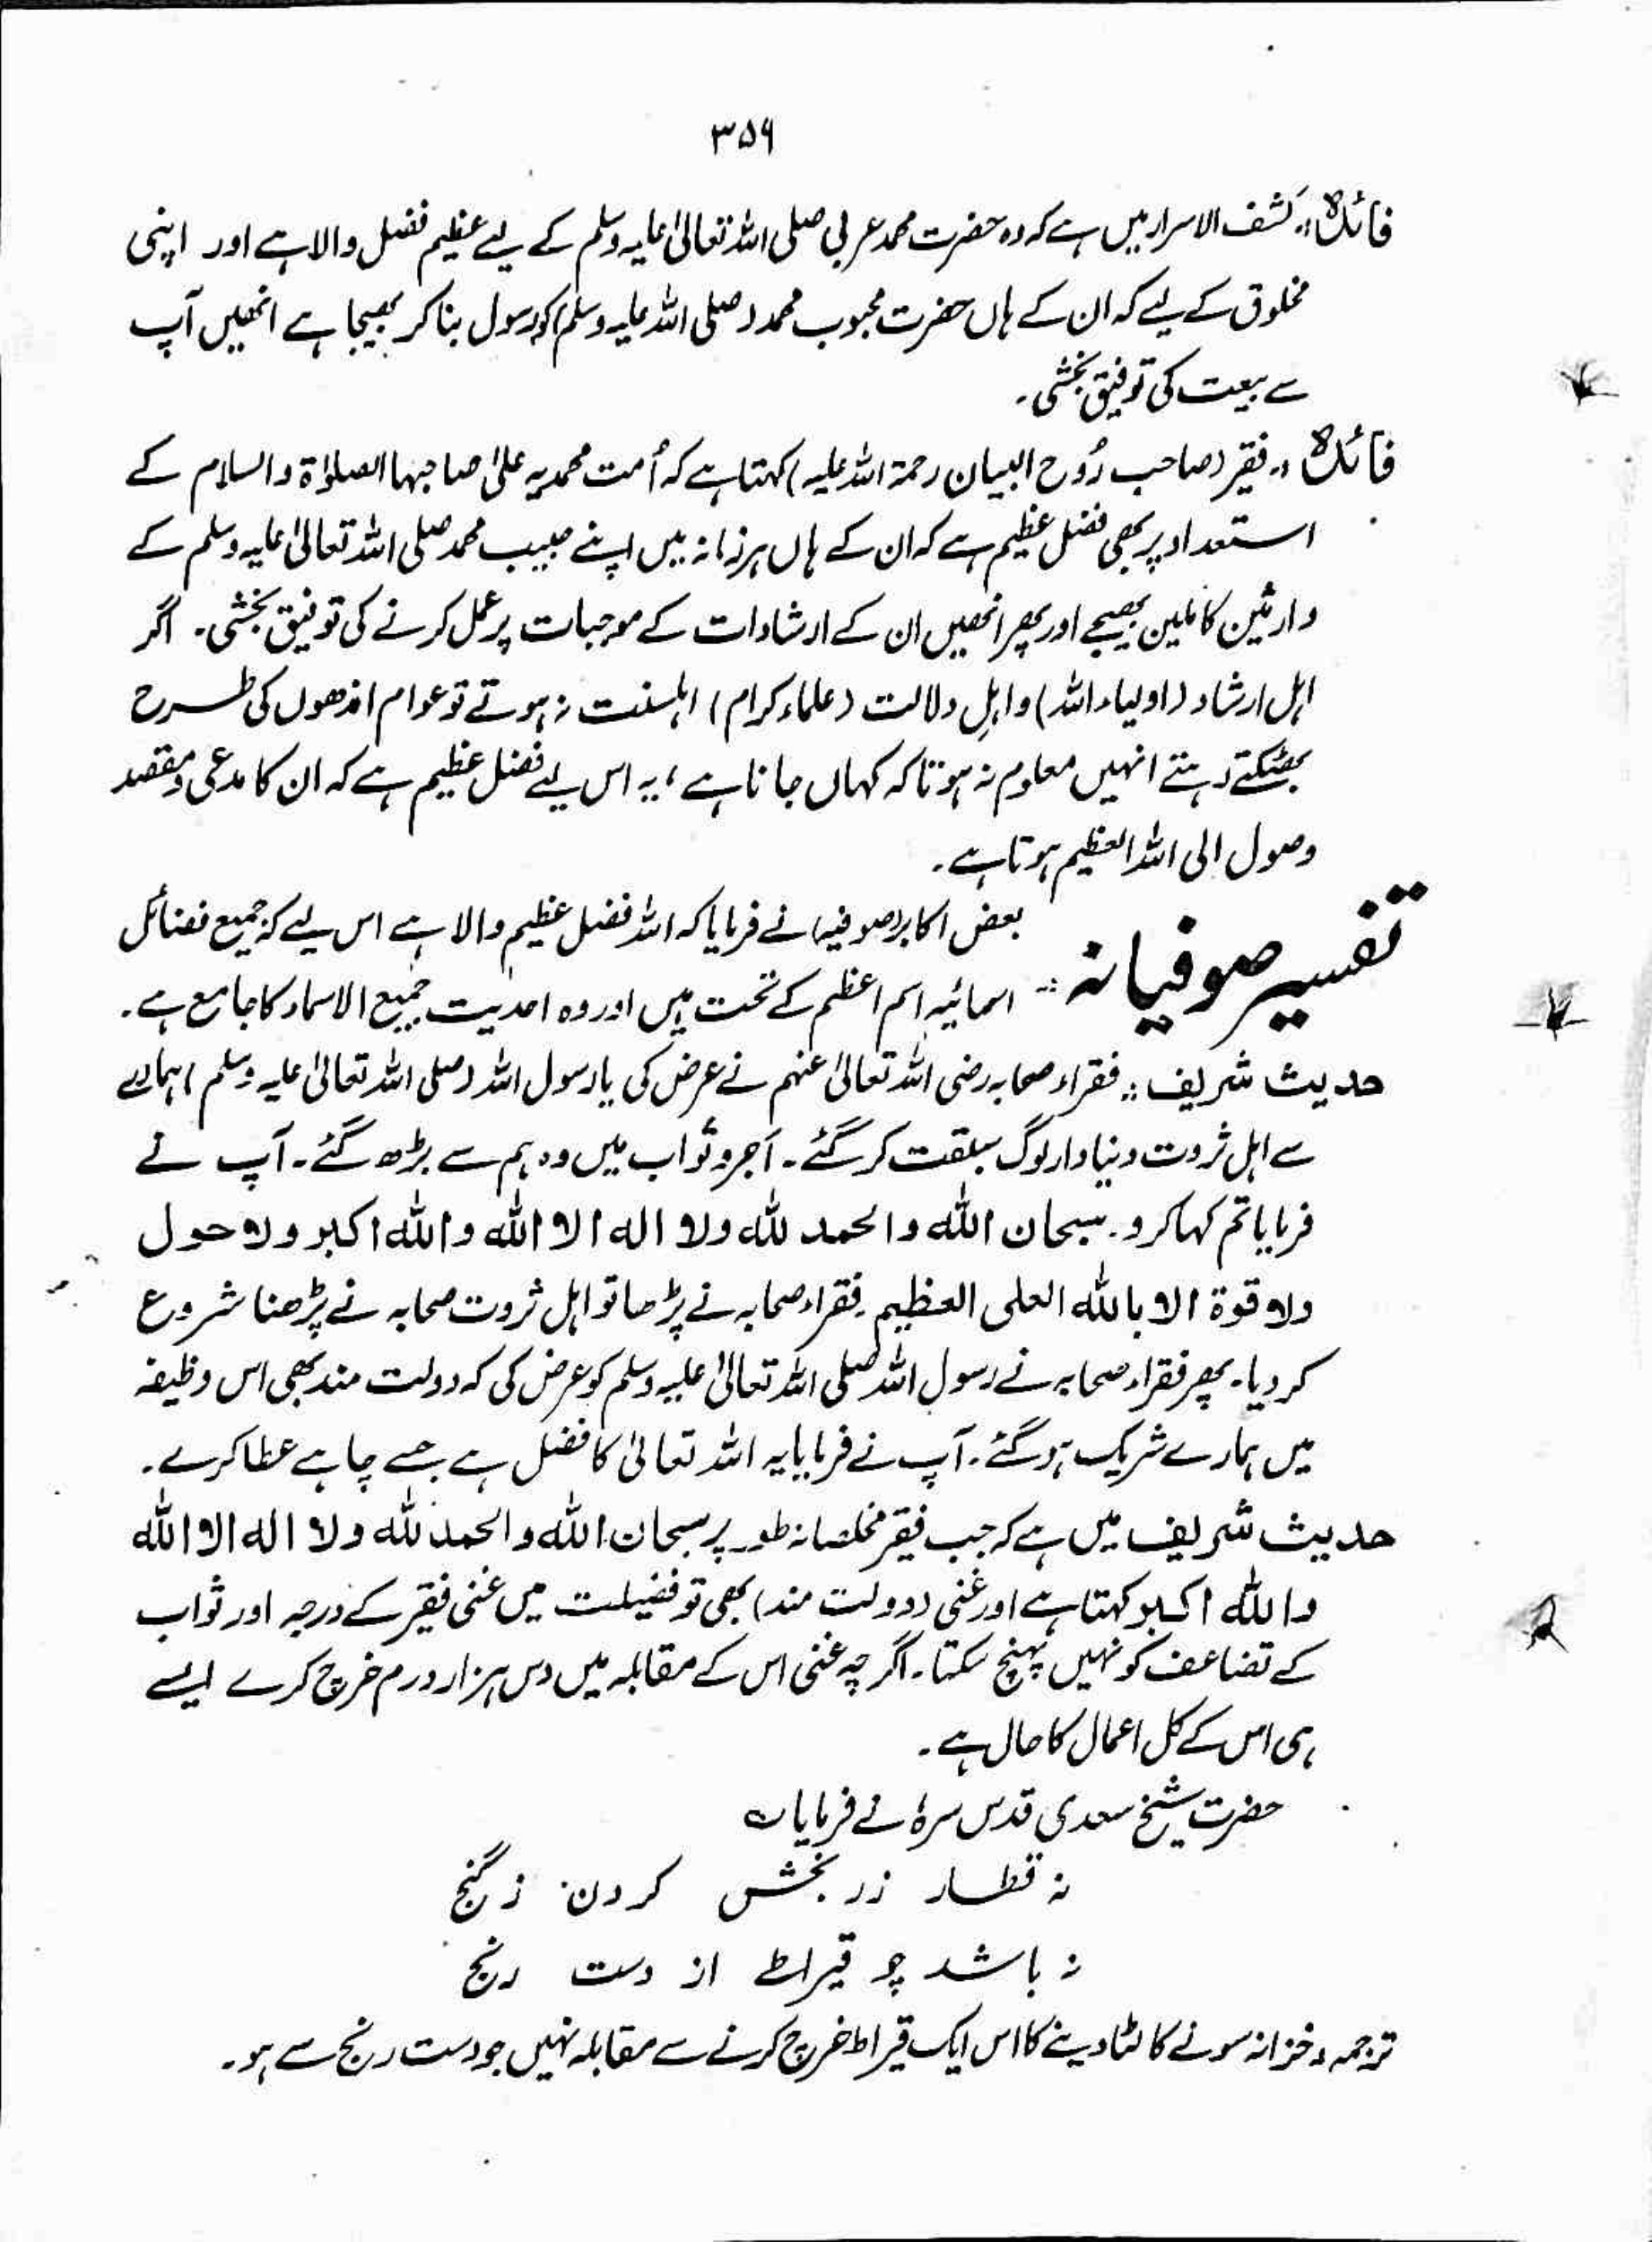 ۳۵۹
فائدہ:۔ کشف الاسرار میں ہے کہ وہ حضرت محمد عربی صلی اللہ تعالیٰ علیہ وسلم کے لیے عظیم فضل والا ہے اور اپنی
مخلوق کے لیے کہ ان کے ہاں حضرت محبوب محمد (صلی اللہ علیہ وسلم) کو رسول بنا کر بھیجا ہے انھیں آپ
سے بیعت کی توفیق بخشی۔
فائدہ :۔ فقیر (صاحب رُوح البیان رحمۃ اللہ علیہ) کہتا ہے کہ اُمت محمدیہ علیٰ صاجہہا الصلوٰۃ والسلام کے
استعداد پر بھی فضل عظیم ہے کہ ان کے ہاں ہر زمانہ میں اپنے حبیب محمد صلی اللہ تعالیٰ علیہ وسلم کے
وارثین کاملین بھیجے اور پھر انھیں ان کے ارشادات کے موجبات پر عمل کرنے کی توفیق بخشی۔ اگر
اہل ارشاد (اولیاء اللہ) و اہلِ دلالت (علماء کرام) اہلسنت نہ ہوتے تو عوام اندھوں کی طرح
بھٹکتے رہتے انہیں معلوم نہ ہوتا کہ کہاں جانا ہے، یہ اس لیے فضل عظیم ہے کہ ان کا مدعی و مقصد
وصول الی اللہ العظیم ہوتا ہے۔
تفسیر صوفیانہ :: بعض اکابر (صوفیہ) نے فرمایا کہ اللہ فضل عظیم والا ہے اس لیے کہ جمیع فضائل
اسمائیہ اسم اعظم کے تحت ہیں اور وہ احدیت جمیع الاسماء کا جامع ہے۔
حدیث شریف :: فقراء صحابہ رضی اللہ تعالیٰ عنہم نے عرض کی یا رسول اللہ (صلی اللہ تعالیٰ علیہ وسلم) ہمارے
سے اہل ثروت دنیا دار لوگ سبقت کر گئے۔ اجر و ثواب میں وہ ہم سے بڑھ گئے۔ آپ نے
فرمایا تم کہا کرو۔ سبحان اللہ والحمد للہ ولا الہ الا اللہ واللہ اکبر ولا حول
ولا قوۃ الا باللہ العلی العظیم۔ فقراء صحابہ نے پڑھا تو اہل ثروت صحابہ نے پڑھنا شروع
کر دیا۔ پھر فقراء صحابہ نے رسول اللہ صلی اللہ تعالیٰ علیہ وسلم کو عرض کی کہ دولت مند بھی اس وظیفہ
میں ہمارے شریک ہو گئے۔ آپ نے فرمایا یہ اللہ تعالیٰ کا فضل ہے جسے چاہے عطا کرے۔
حدیث شریف میں ہے کہ جب فقیر مخلصانہ طور پر سبحان اللہ والحمد للہ ولا الہ الا اللہ
واللہ اکبر کہتا ہے اور غنی (دولت مند) بھی تو فضیلت میں غنی فقیر کے درجہ اور ثواب
کے تضاعف کو نہیں پہنچ سکتا۔ اگر چہ غنی اس کے مقابلہ میں دس ہزار درم خرچ کرے ایسے
ہی اس کے کل اعمال کا حال ہے۔
حضرت شیخ سعدی قدس سرہٗ نے فرمایا ؎
نہ قطار زر بخش کردن ز گنج
نہ باشد چو قیراط از دست رنج
ترجمہ: خزانہ سونے کا لٹا دینے کا اس ایک قیراط خرچ کرنے سے مقابلہ نہیں جو دست رنج سے ہو۔